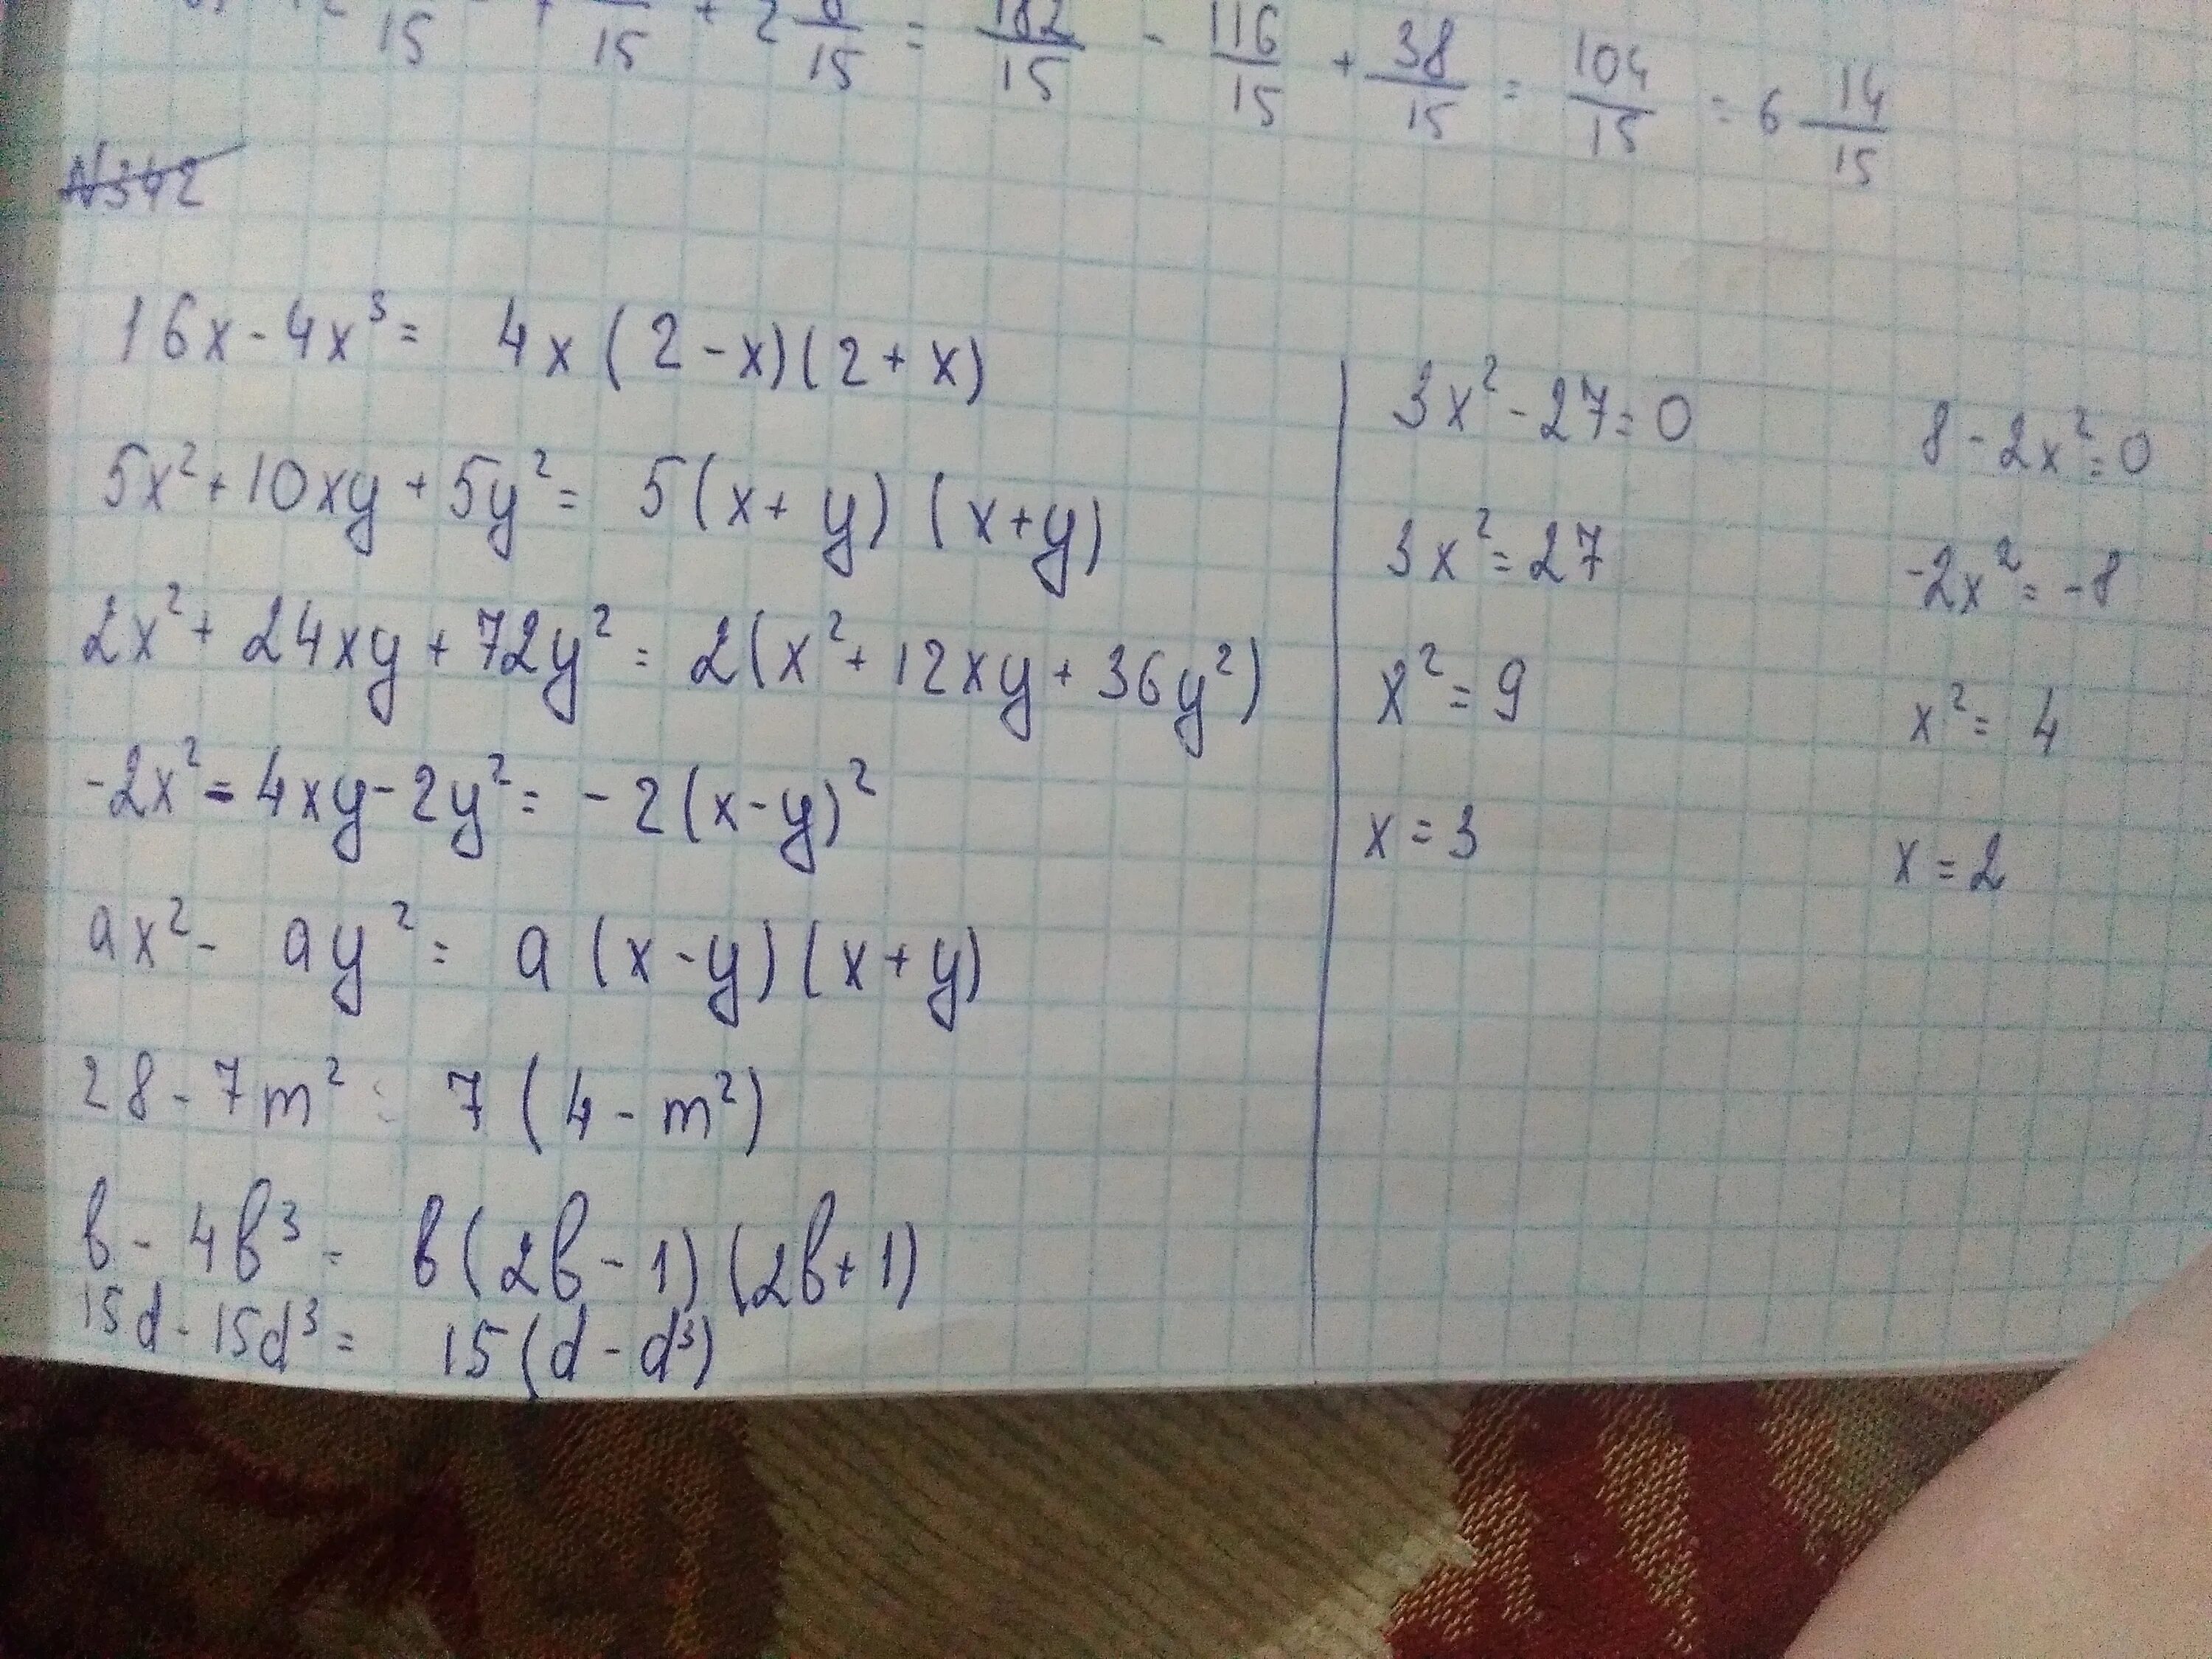 15 15 + 2 8/15 = 182/15 - 116/15 + 38/15 = 104/15 = 6 14/15
N342
16x - 4x³ = 4x(2 - x)(2 + x)
5x² + 10xy + 5y² = 5(x + y)(x + y)
2x² + 24xy + 72y² = 2(x² + 12xy + 36y²)
-2x² - 4xy - 2y² = -2(x - y)²
ax² - ay² = a(x - y)(x + y)
28 - 7m² = 7(4 - m²)
b - 4b³ = b(2b - 1)(2b + 1)
15d - 15d³ = 15(d - d³)
3x² - 27 = 0
3x² = 27
x² = 9
x = 3
8 - 2x² = 0
-2x² = -8
x² = 4
x = 2